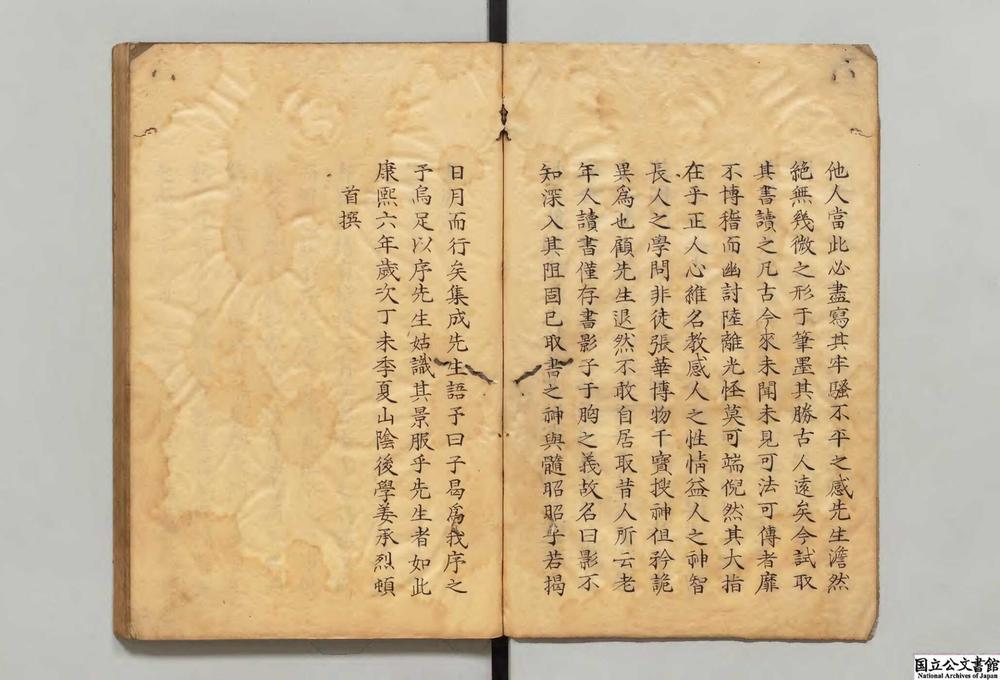 他人當此必盡寫其牢騷不平之感先生澹然
絕無幾微之形于筆墨其勝古人遠矣今試取
其書讀之凡古今來未聞未見可法可傳者靡
不博稽而幽討陸離光怪莫可端倪然其大指
在乎正人心維名教感人之性情益人之神智
長人之學問非徒張華博物干寶搜神但矜詭
異爲也顧先生退然不敢自居取昔人所云老
年人讀書僅存書影子于胸之義故名曰影不
知深入其阻固已取書之神與髓昭昭乎若揭
日月而行矣集成先生語予曰子曷爲我序之
予烏足以序先生姑識其景服乎先生者如此
康熙六年歲次丁未季夏山陰後學姜承烈頓
首撰
国立公文書館
National Archives of Japan